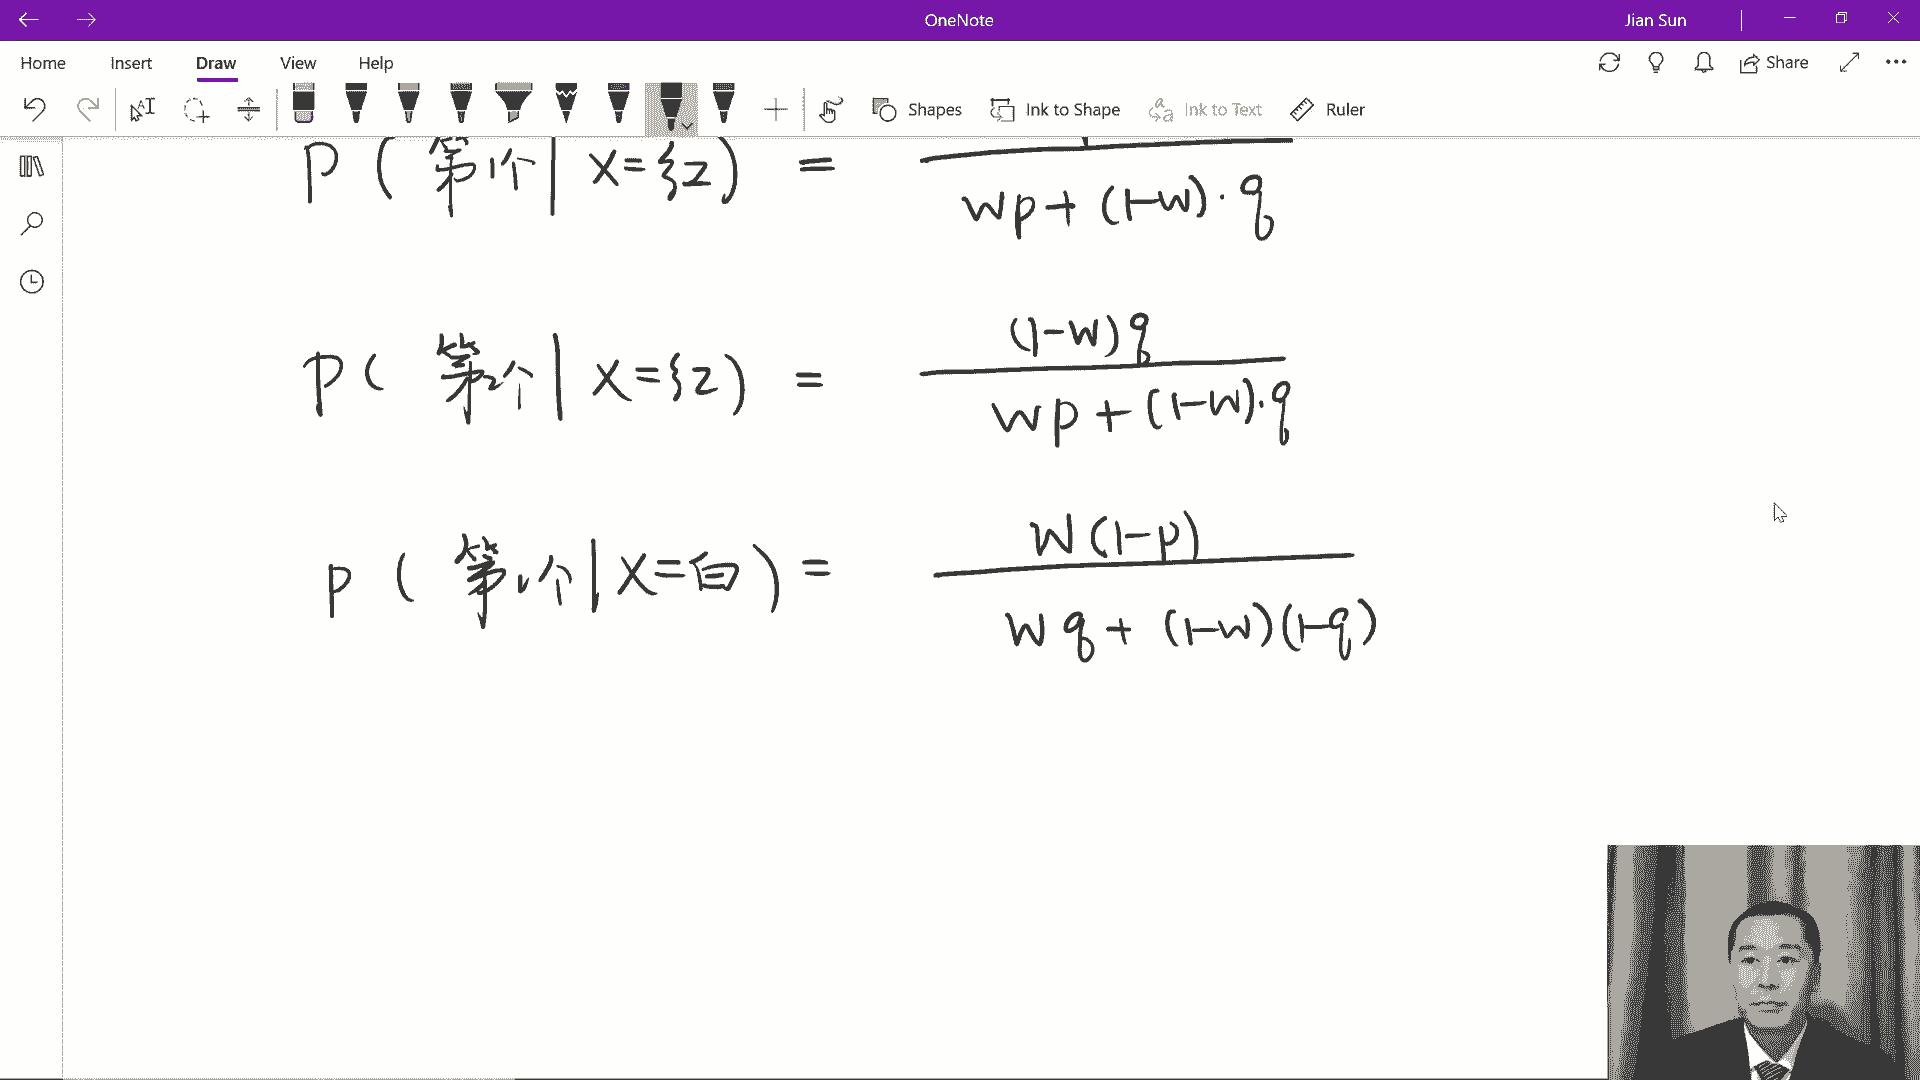 OneNote
Jian Sun
Home Insert Draw View Help
Share
Shapes Ink to Shape Ink to Text Ruler
P ( 第1个 | X=红) =
wp + (1-w) · q
(1-w) q
P( 第2个 | X=红) =
wp + (1-w) · q
w (1-p)
P ( 第1个 | X=白 ) =
w q + (1-w)(1-q)